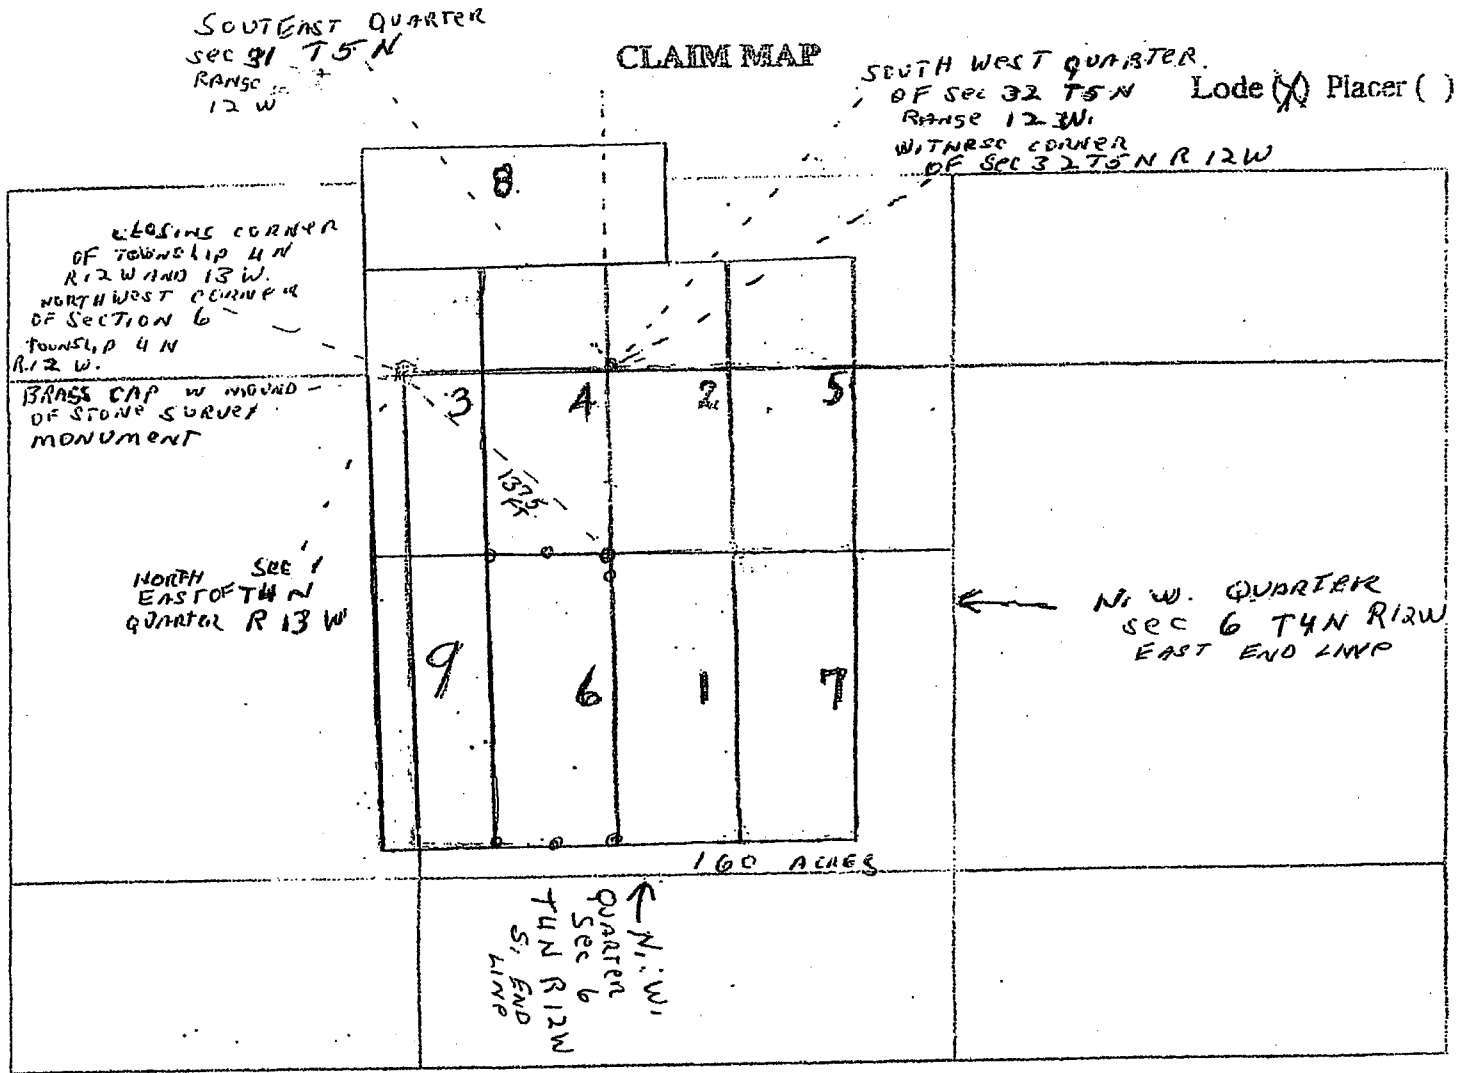 SOUTEAST QUARTER
SEC 31 T5N
RANGE
12 W
CLAIM MAP
SOUTH WEST QUARTER
OF SEC 32 T5N
RANGE 12 W.
WITNESS CORNER
OF SEC 32 T5N R 12W
Lode (X) Placer ( )
8
CLOSING CORNER
OF TOWNSHIP 4 N
R12 W AND 13 W.
NORTHWEST CORNER
OF SECTION 6
TOWNSLIP 4 N
R.12 W.
BRASS CAP W MOUND
OF STONE SURVEY
MONUMENT
3 4 2 5
1375
FT
NORTH SEC 1
EAST OF T4N
QUARTER R 13 W
N. W. QUARTER
SEC 6 T4N R12W
EAST END LINE
9 6 1 7
160 ACRES
N. W.
QUARTER
SEC 6
T4N R12W
S. END
LINE